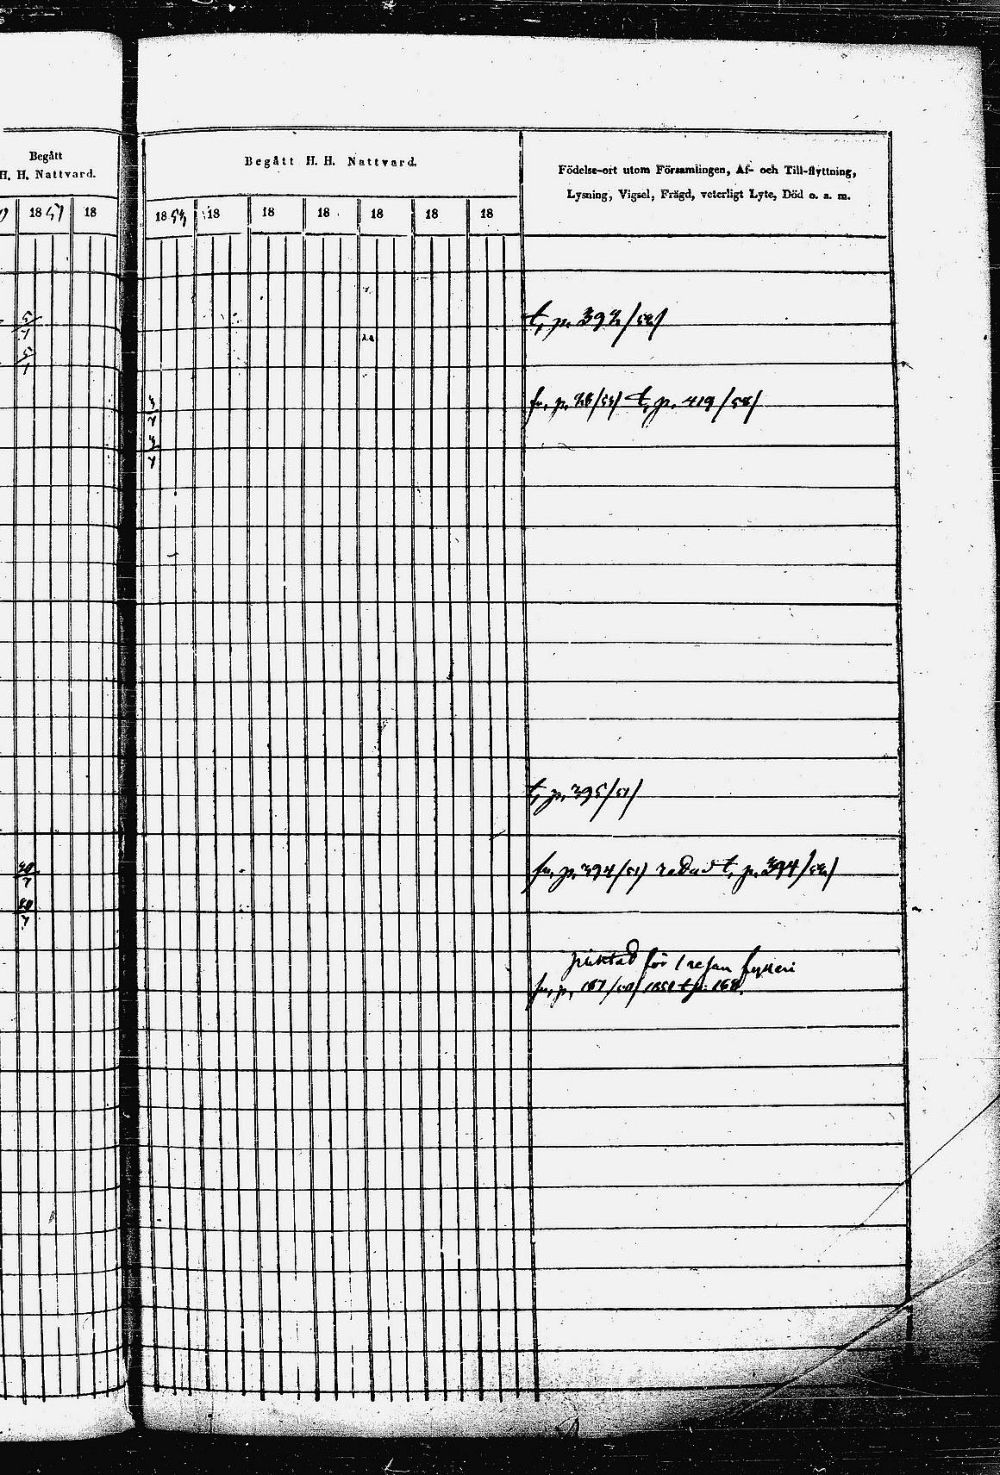 Begått
H. H. Nattvard.
18 51 18
Begått H. H. Nattvard.
18 18 18 18 18 18 18
Födelse-ort utom Församlingen, Af- och Till-flyttning,
Lysning, Vigsel, Frägd, veterligt Lyte, Död o. s. m.
5/1
5/1
t, p. 392/52/
fr. p. 28/51/ t, p. 419/52/
t, p. 395/51/
fr. p. 394/51/ t, p. 394/52/
för 1 resan fylleri
fr. p. 167 t p. 168.